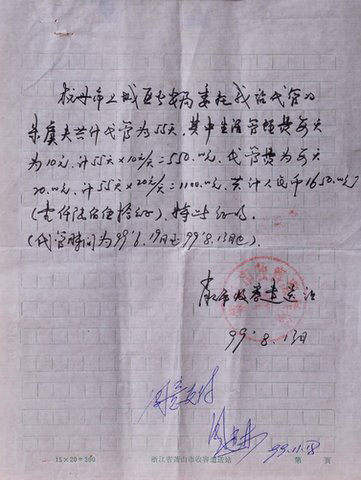 杭州市上城区公安局委托我站代管的
朱虞夫共计代管为55天。其中生活管理费每天
为10元，计55天×10元/天=550.00元，代管费为每天
20.00元，计55天×20元/天=1100.00元，共计人民币1650.00元
（壹仟陆佰伍拾元），特此证明。
（代管时间为99'6.19日至99'8.13日止）.
市收容遣送站
99'8.13日
同意支付
99.11.18
15×20=300 浙江省萧山市收容遣送站 第 页